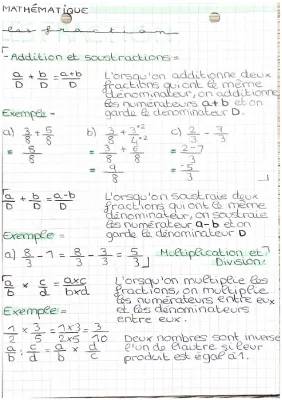 MATHÉMATIQUE
les fractions
- Addition et soustractions =
a/D + b/D = a+b/D
Lorsqu'on additionne deux
fractions qui ont le même
dénominateur, on additionne
les numérateurs a+b et on
garde le dénominateur D.
Exemple =
a) 3/8 + 5/8 b) 3/8 + 3×2/4×2 c) 2/3 - 7/3
= 8/8 = 3/8 + 6/8 = 2-7/3
9/8 = 5/3
a/D + b/D = a-b/D
Lorsqu'on soustraie deux
fractions qui ont le même
dénominateur, on soustraie
les numérateur a-b et on
garde le dénominateur D
Exemple =
a) 8/3 - 1 = 8/3 - 3/3 = 5/3
Multiplication et
Division:
a/b × c/d = a×c/b×d
Lorsqu'on multiplie les
fractions, on multiplie
les numérateurs entre eux
et les dénominateurs
entre eux.
Exemple =
1/2 × 3/5 = 1×3/2×5 = 3/10
Deux nombres sont inverse
l'un de l'autre si leur
produit est égal à 1.
a/b : c/d = a/b × d/c